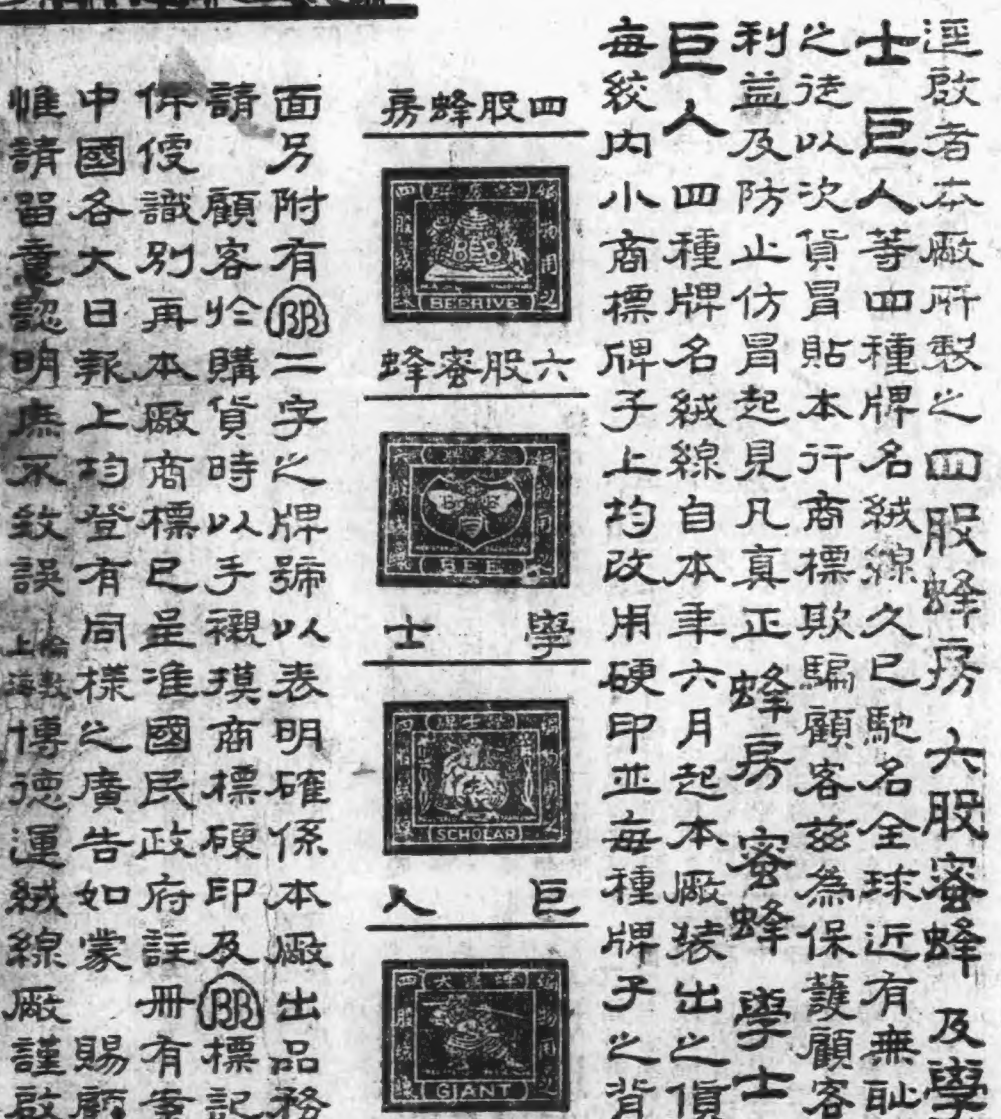 逕啟者本廠所製之四股蜂房六股蜜蜂及學
士巨人等四種牌名絨線久已馳名全球近有無恥
之徒以次貨冒貼本行商標欺騙顧客茲為保護顧客
利益及防止仿冒起見凡真正蜂房蜜蜂學士
巨人四種牌名絨線自本年六月起本廠裝出之貨
每絞內小商標牌子上均改用硬印並每種牌子之背
四股蜂房
BB
BEEHIVE
六股蜜蜂
BEE
學士
SCHOLAR
巨人
GIANT
面另附有BB二字之牌號以表明確係本廠出品務
請顧客於購貨時以手襯摸商標硬印及BB標記
俾便識別再本廠商標已呈准國民政府註冊有案
中國各大日報上均登有同樣之廣告如蒙賜顧
惟請留意認明庶不致誤倫敦上海博德運絨線廠謹啟